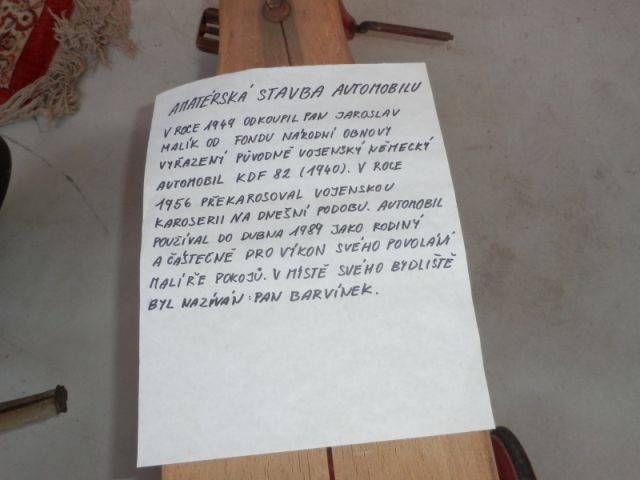 AMATÉRSKÁ STAVBA AUTOMOBILU
V ROCE 1949 ODKOUPIL PAN JAROSLAV
MALÍK OD FONDU NÁRODNÍ OBNOVY
VYŘAZENÝ PŮVODNĚ VOJENSKÝ NĚMECKÝ
AUTOMOBIL KDF 82 (1940). V ROCE
1956 PŘEKAROSOVAL VOJENSKOU
KAROSERII NA DNEŠNÍ PODOBU. AUTOMOBIL
POUŽÍVAL DO DUBNA 1989 JAKO RODINÝ
A ČÁSTEČNĚ PRO VÝKON SVÉHO POVOLÁNÍ
MALÍŘE POKOJŮ. V MÍSTĚ SVÉHO BYDLIŠTĚ
BYL NAZÍVÁN: PAN BARVÍNEK.